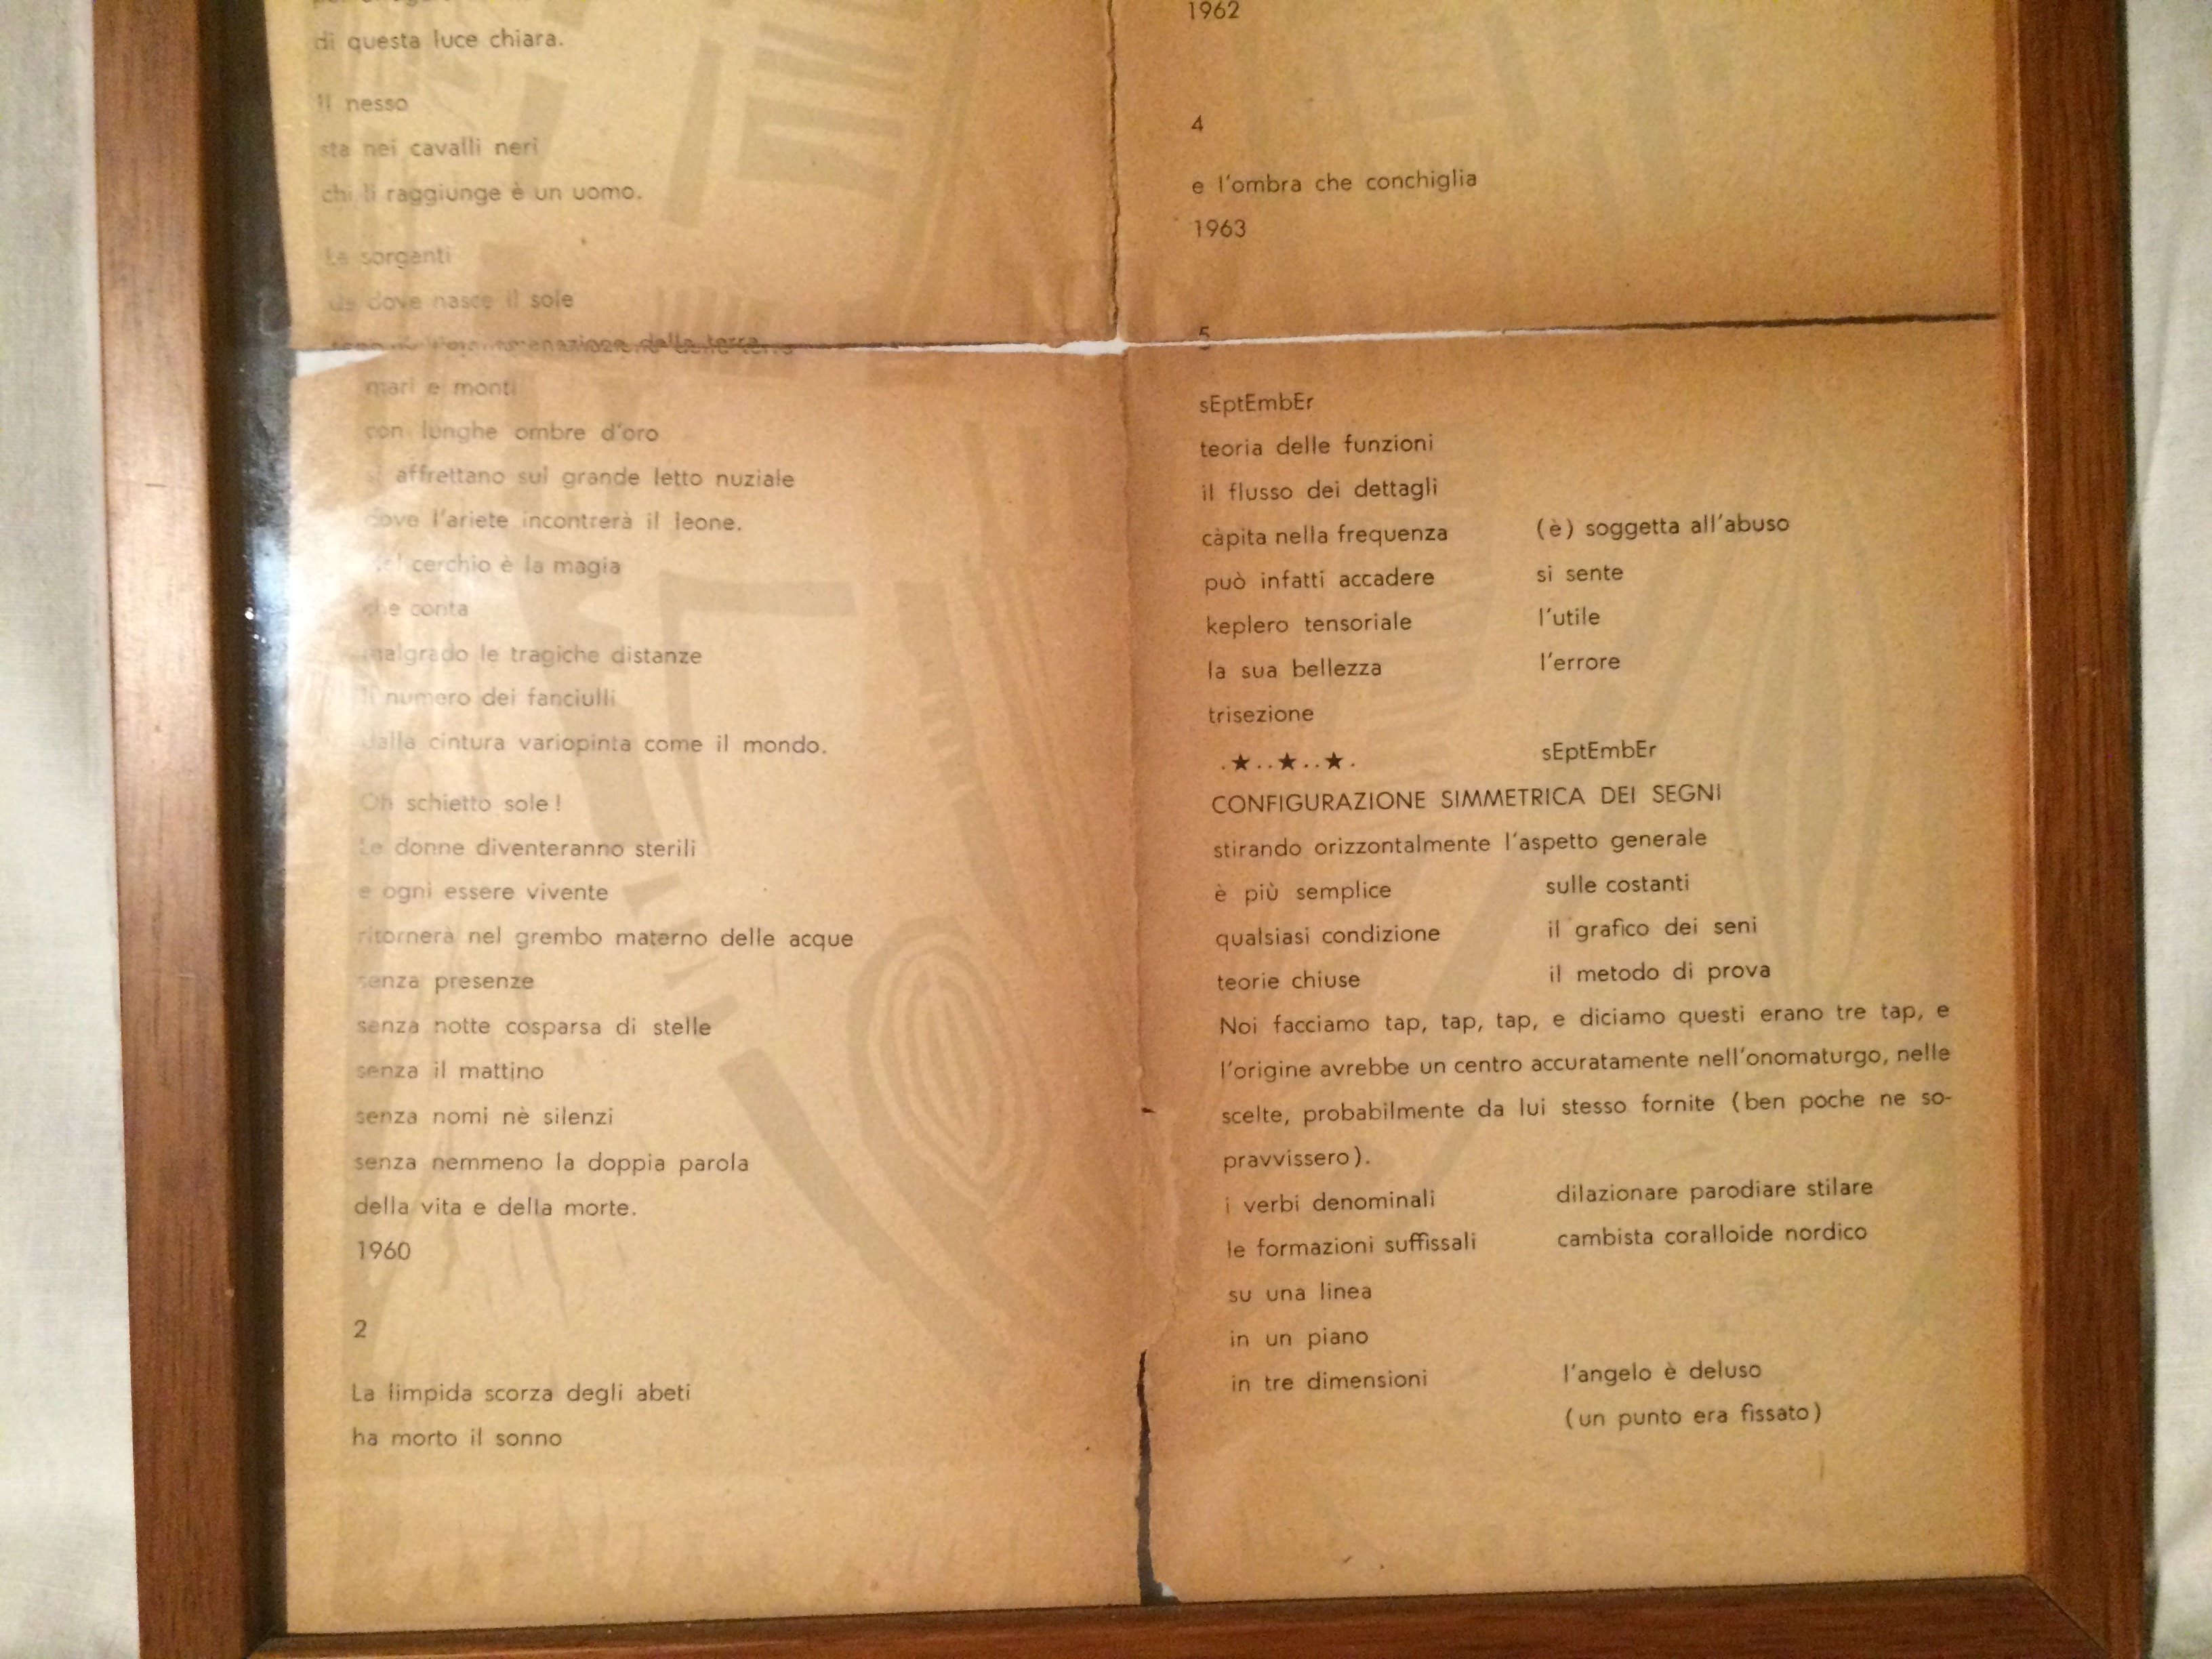 di questa luce chiara.
Il nesso
sta nei cavalli neri
chi li raggiunge è un uomo.
Le sorgenti
da dove nasce il sole
della terra
mari e monti
con lunghe ombre d'oro
si affrettano sul grande letto nuziale
dove l'ariete incontrerà il leone.
cerchio è la magia
che conta
malgrado le tragiche distanze
il numero dei fanciulli
dalla cintura variopinta come il mondo.
Oh schietto sole !
Le donne diventeranno sterili
e ogni essere vivente
ritornerà nel grembo materno delle acque
senza presenze
senza notte cosparsa di stelle
senza il mattino
senza nomi nè silenzi
senza nemmeno la doppia parola
della vita e della morte.
1960
2
La limpida scorza degli abeti
ha morto il sonno
1962
4
e l'ombra che conchiglia
1963
5
sEptEmbEr
teoria delle funzioni
il flusso dei dettagli
càpita nella frequenza (è) soggetta all'abuso
può infatti accadere si sente
keplero tensoriale l'utile
la sua bellezza l'errore
trisezione
.★..★..★. sEptEmbEr
CONFIGURAZIONE SIMMETRICA DEI SEGNI
stirando orizzontalmente l'aspetto generale
è più semplice sulle costanti
qualsiasi condizione il grafico dei seni
teorie chiuse il metodo di prova
Noi facciamo tap, tap, tap, e diciamo questi erano tre tap, e
l'origine avrebbe un centro accuratamente nell'onomaturgo, nelle
scelte, probabilmente da lui stesso fornite (ben poche ne so-
pravvissero).
i verbi denominali dilazionare parodiare stilare
le formazioni suffissali cambista coralloide nordico
su una linea
in un piano
in tre dimensioni l'angelo è deluso
(un punto era fissato)